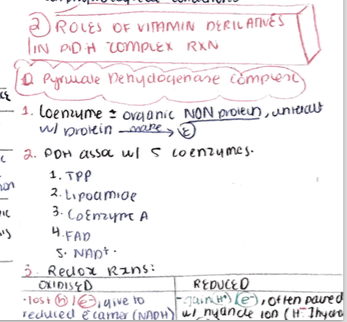 2) ROLES OF VITAMIN DERILATIVES
IN PDH COMPLEX RXN
① Pyruvate Dehydogenase Complexe
1. Coenzyme = organic NON protein, interact
w/ protein make → Ⓔ
2. PDH assoc w/ 5 coenzymes.
1. TPP
2. Lipoamide
3. Coenzyme A
4. FAD
5. NAD+.
3. Redox Rxns:
OXIDISED REDUCED
- lost (h)/(e-), give to - gain(H+)/(e-), often paired
reduced carrier (NADH) w/ hydride ion (H-